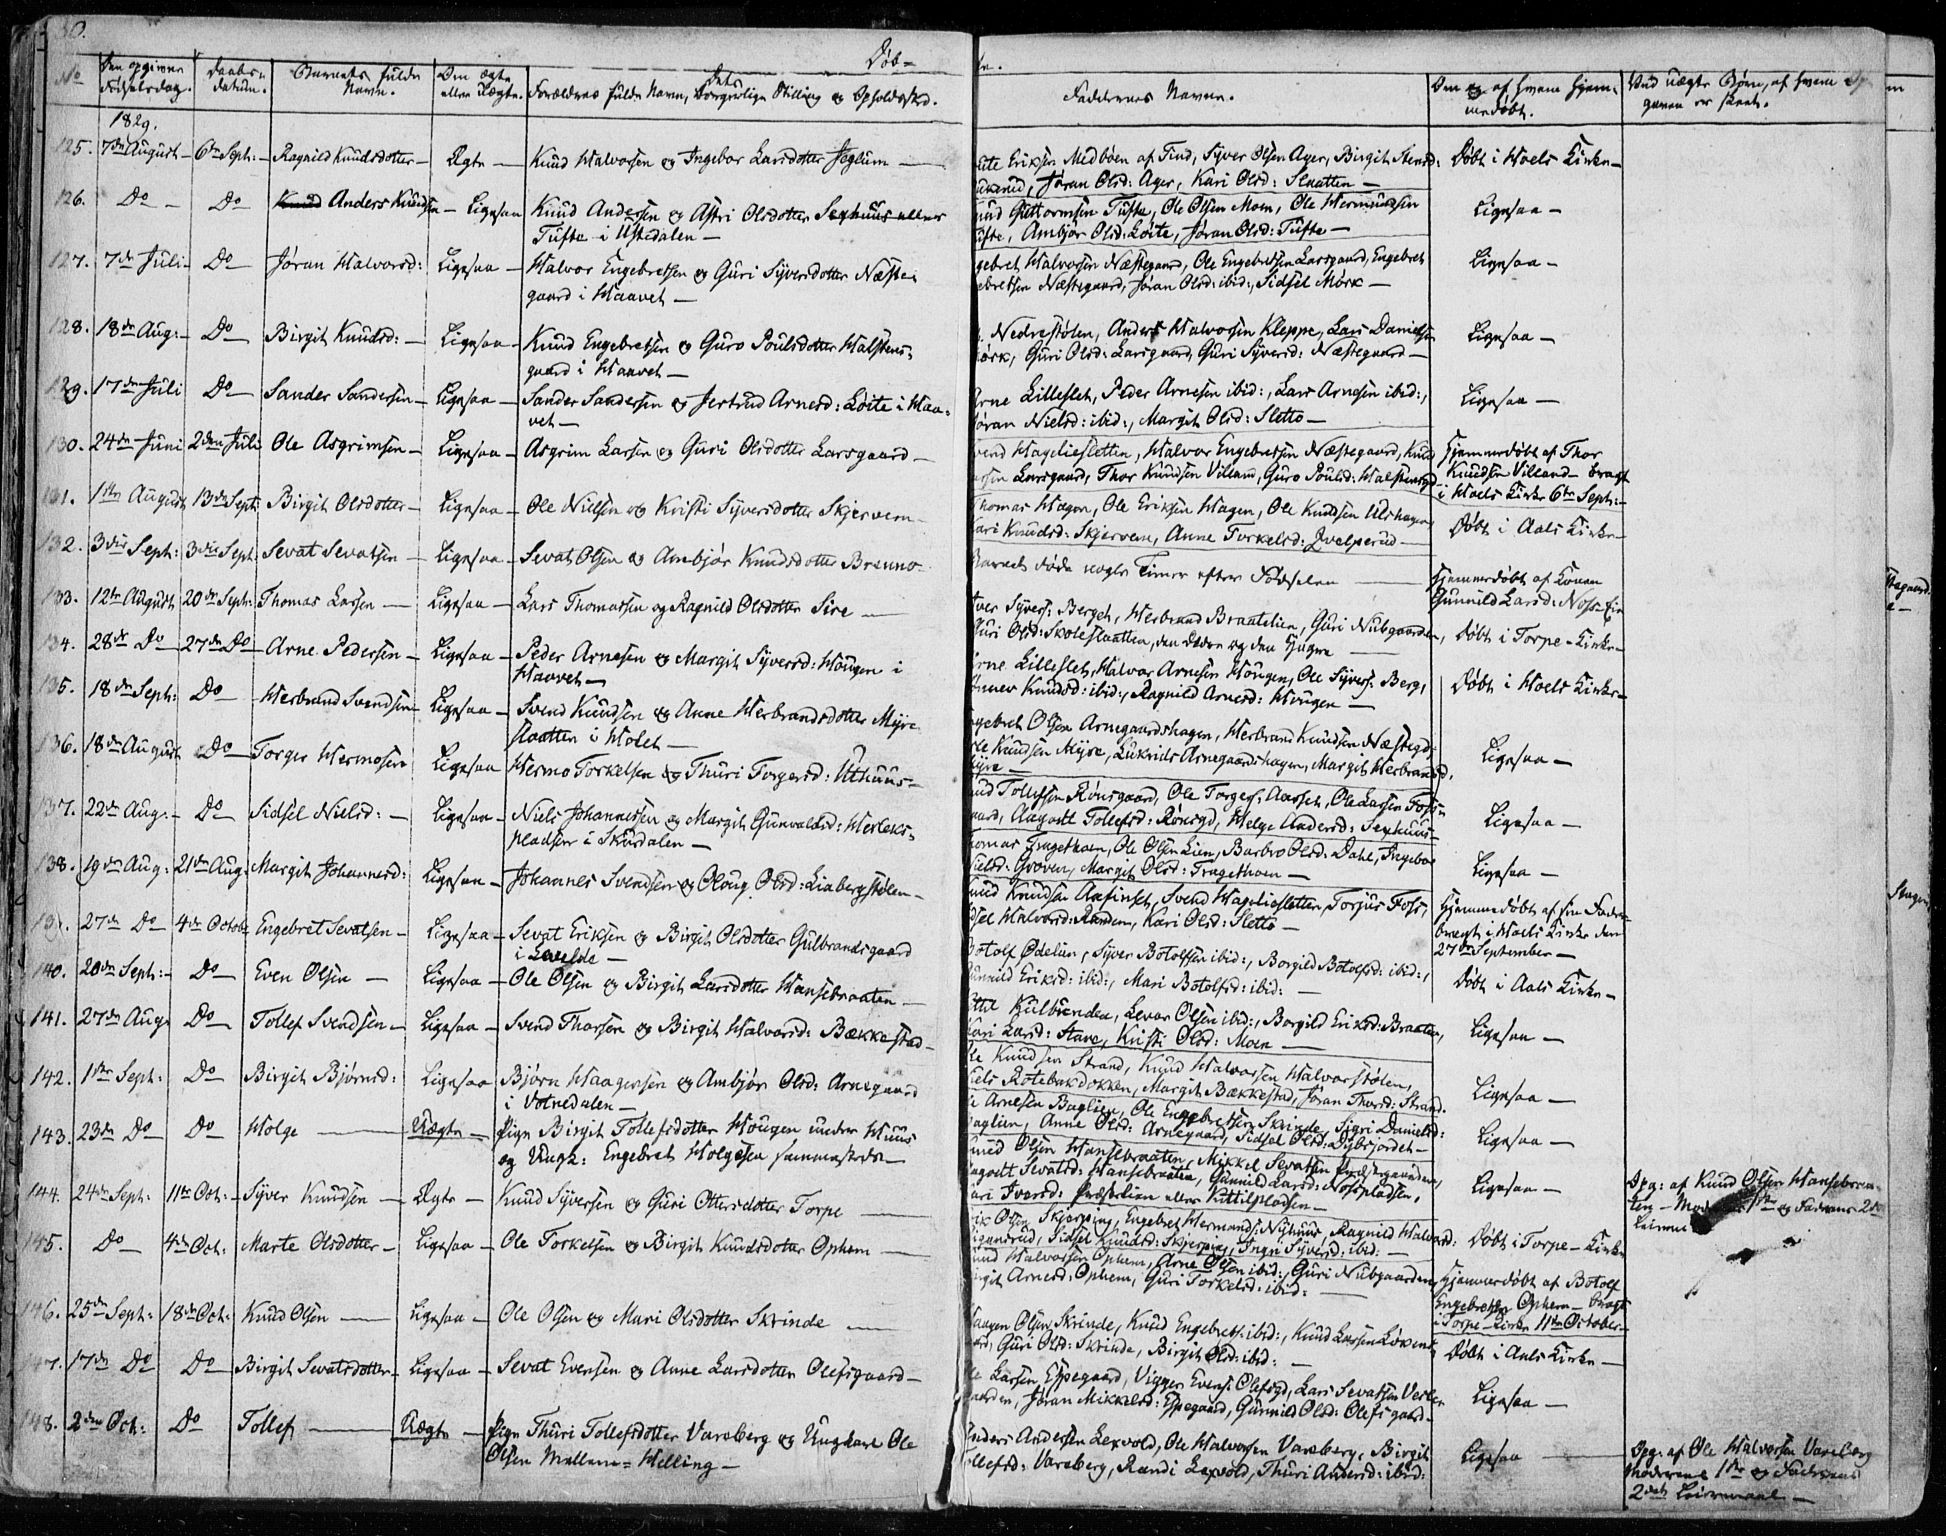 30.
Døb=
No
Den opgivne
Fødselsdag.
Daabs-
datum.
Barnets fulde
Navn.
Om ægte
eller Uægte.
Forældres fulde Navn, Borgerlige Stilling og Opholdssted.
dets
Faddernes Navne.
Om og af hvem hjem-
medøbt.
Ved uægte Børn, af hvem Op-
gaven er skeet.
1829.
125. 7de August – 6te Sept: – Ragnild Knudsdotter – Ægte – Knud Halvorsen og Ingebor Larsdotter Jeglum –
126. Do – Do Knud Anders Knudsen – Ligesaa Knud Andersen og Astri Olsdotter Sexhuus eller
Tufte i Ustedalen –
127. 7de Juli – Do – Jøran Halvorsd: Ligesaa – Halvor Engebretsen og Guri Syversdotter Næste-
gaard i Haavet –
128. 18de Aug: – Do – Birgit Knudsd: – Ligesaa – Knud Engebretsen og Guro Poulsdotter Halstens-
gaard i Haavet –
129. 17de Juli Do – Sander Sandersen – Ligesaa – Sander Sandersen og Jertrud Arnesd: Løite i Haa-
vet –
130. 24de Juni 2den Juli Ole Asgrimsen – Ligesaa – Asgrim Larsen og Guri Olsdotter Larsgaard –
131. 1ste August 13de Sept: Birgit Olsdotter – Ligesaa – Ole Nielsen og Kristi Syversdotter Skjervem –
132. 3die Sept: 3die Sept: Sevat Sevatsen – Ligesaa – Sevat Olsen og Ambjør Knudsdotter Brenno –
133. 12te August 20de Sept: Thomas Larsen – Ligesaa – Lars Thomassen og Ragnild Olsdotter Sire –
134. 28de Do – 27de Do – Arne Pedersen – Ligesaa – Peder Arnesen og Margit Syversd: Hougen i
Haavet –
135. 18de Sept: Do – Herbrand Svendsen – Ligesaa – Svend Knudsen og Anne Herbrandsdotter Myre
slaatten i Holet –
136. 18de August Do – Torger Hermosen Ligesaa Hermo Torkelsen og Thuri Torgersd: Uthuus –
137. 22de Aug: – Do – Sidsel Nielsd: – Ligesaa – Niels Johannissen og Margit Gunvaldsd:
pladsen i Skurdalen –
138. 19de Aug: 21de Aug: Margit Johannesd: Ligesaa – Johannes Svendsen og Oloug Olsd: Liabergstølen –
139. 27de Do 4de Octobr Engebret Sevatsen – Ligesaa – Sevat Eriksen og Birgit Olsdotter Gulbrandsgaard
i
140. 20de Sept: – Do – Even Olsen – Ligesaa – Ole Olsen og Birgit Larsdotter Hansebraaten –
141. 27de Aug: Do – Tollef Svendsen – Ligesaa – Svend Thorsen og Birgit Halvorsd: Bækkestad –
142. 1ste Sept: Do – Birgit Bjørnsd: Ligesaa Bjørn Haagensen og Ambjør Olsd: Arnegaard
i Votnedalen –
143. 23de Do – Do – Holge – Uægte – Pige Birgit Tollefsdotter Hougen under Huus
og Ungk: Engebret Holgesen sammesteds –
144. 24de Sept: 11te Oct: – Syver Knudsen – Ægte – Knud Syversen og Guri Ottersdotter Torpe –
145. Do – 4de Oct: Marte Olsdotter – Ligesaa – Ole Torkelsen og Birgit Knudsdotter Ophem –
146. 25de Sept: 18de Oct: Knud Olsen – Ligesaa – Ole Olsen og Mari Olsdotter Skrinde –
147. 17de Do – Do Birgit Sevatsdotter – Ligesaa – Sevat Evensen og Anne Larsdotter Olefsgaard –
148. 2den Oct: Do Tollef – Uægte – Pige Thuri Tollefsdotter Varaberg og Ungkarl Ole
Olsen Mellem=Helling –
Eriksen Medboen af Tind, Syver Olsen Ager, Birgit
Jøran Olsd: Ager, Kari Olsd: Slaatten – Døbt i Hoels Kirke –
Guttormsen Tufte, Ole Olsen Moen, Ole Hermundsen
Tufte, Ambjør Olsd: Løite, Jøran Olsd: Tufte – Ligesaa –
Halvorsen Næstegaard, Ole Engebretsen Larsgaard, Engebret
Næstegaard, Jøran Olsd: ibid:, Sidsel Mørk – Ligesaa –
Nedrestølen, Anders Halvorsen Kleppe, Lars Danielsen
Mørk, Guri Olsd: Larsgaard, Guri Syversd: Næstegaard – Ligesaa –
Arne Lilleslet, Peder Arnesen ibid:, Lars Arnesen ibid:,
Jøran Nielsd: ibid:, Margit Olsd: Sletto – Ligesaa –
Svend Hagelieslætten, Halvor Engebretsen Næstegaard, Knud
Larsgaard, Thor Knudsen Villand, Guro Poulsd: Halstensgd Hjemmedøbt af Thor
Knudsen Villand – bragt
i Hoels Kirke 6te Sept: –
Thomas Hagen, Ole Eriksen Hagen, Ole Knudsen Ulshagen
Kari Knudsd: Skjervem, Anne Torkelsd: Qvelperud – Døbt i Aals Kirke –
Barnet døde nogle Timer efter Fødselen – Hjemmedøbt af Konen
Gunnild Larsd:
Syvers: Berget, Herbrand Braatelien, Guri Nubgaarden,
Guri Olsd: Skoleslaatten, den Ældre og den Yngre – Døbt i Torpe – Kirke –
Arne Lilleslet, Halvor Arnesen Hougen, Ole Syvers: Berg,
Knudsd: ibid:, Ragnild Arnesd: Hougen – Døbt i Hoels Kirke –
Engebret Olsen Arnegaardshagen, Herbrand Knudsen Næstegd:
Knudsen Myre, Arnegaardshagen, Margit Herbrandsd.
Myre – Ligesaa –
Knud Tollefsen Rønsgaard, Ole Torgers: Aasset, Ole Larsen Foss-
gaard, Aagodt Tollefsd: Rønsgd, Helge Andersd: Sexhuus – Ligesaa –
Thomas Tragethoen, Ole Olsen Lien, Barbro Olsd: Dahl, Ingebor
Nielsd: Groven, Margit Olsd: Tragethoen – Ligesaa –
Knud Knudsen Aafinset, Svend Hagelieslætten, Torjus Foss,
Sidsel Halvorsd: Randen, Kari Olsd: Sletto – Hjemmedøbt af sin Fader
bragt i Hoels Kirke den
27de September –
Botolf Ødelien, Syver Botolfsen ibid:, Borgild Botolfsd: ibid:,
Gunnild Eriksd: ibid:, Mari Botolfsd: ibid: – Døbt i Aals Kirke –
Kulbrenden, Levor Olsen ibid:, Borgild Eriksd: Braaten,
Kari Larsd: Stave, Kristi Olsd: Moen – Ligesaa –
Ole Knudsen Strand, Knud Halvorsen Halvorstølen,
Niels Rotebakdokken, Margit Bækkestad, Jøran Thorsd: Strand. Ligesaa –
Arnesen Baglien, Ole Engebretsen Skrinde, Sigri Danielsd:
Baglien, Anne Olsd: Arnegaard, Sidsel Olsd: Dybsjordet – Ligesaa –
Knud Olsen Hansebraaten, Mikkel Sevatsen Præstegaarden,
Aagodt Sevatsd: Hansebraaten, Gunnild Larsd: Nosspladsen,
Kari Iversd: Præstelien eller Kittilpladsen – Ligesaa –
Opg: af Knud Olsen Hansebraa-
ten – Mod 1ste og Faderens 2det
Leierm
Erik Olsen Skjerping, Engebret Hermands: Nyhuus, Ragnild Halvorsd:
Sidsel Knudsd: Skjerping, Inge Syversd: ibid: – Døbt i Torpe – Kirke
Knud Halvorsen Ophem, Arne Olsen ibid:, Guri Nubgaarden,
Birgit Arnesd: Ophem, Guri Torkelsd: ibid: – Hjemmedøbt af Botolf
Engebretsen Ophem – bragt
i Torpe – Kirke 11te October –
Haagen Olsen Skrinde, Knud Engebrets: ibid:, Knud Larsen
Guri Olsd: Skrinde, Birgit Olsd: ibid: – Døbt i Aals Kirke –
Ole Larsen Espegaard, Vigger Evens: Olefsgd, Lars Sevatsen Vesle
gaarden, Jøran Mikkelsd: Espegaard, Gunnild Olsd: Olefsgaard – Ligesaa –
Anders Andersen Lexvold, Ole Halvorsen Varaberg, Birgit
Tollefsd: Varaberg, Randi Lexvold, Thuri Andersd: ibid: Ligesaa –
Opg: af Ole Halvorsen Varaberg
Moderens 1ste og Faderens
2det Leiermaal –